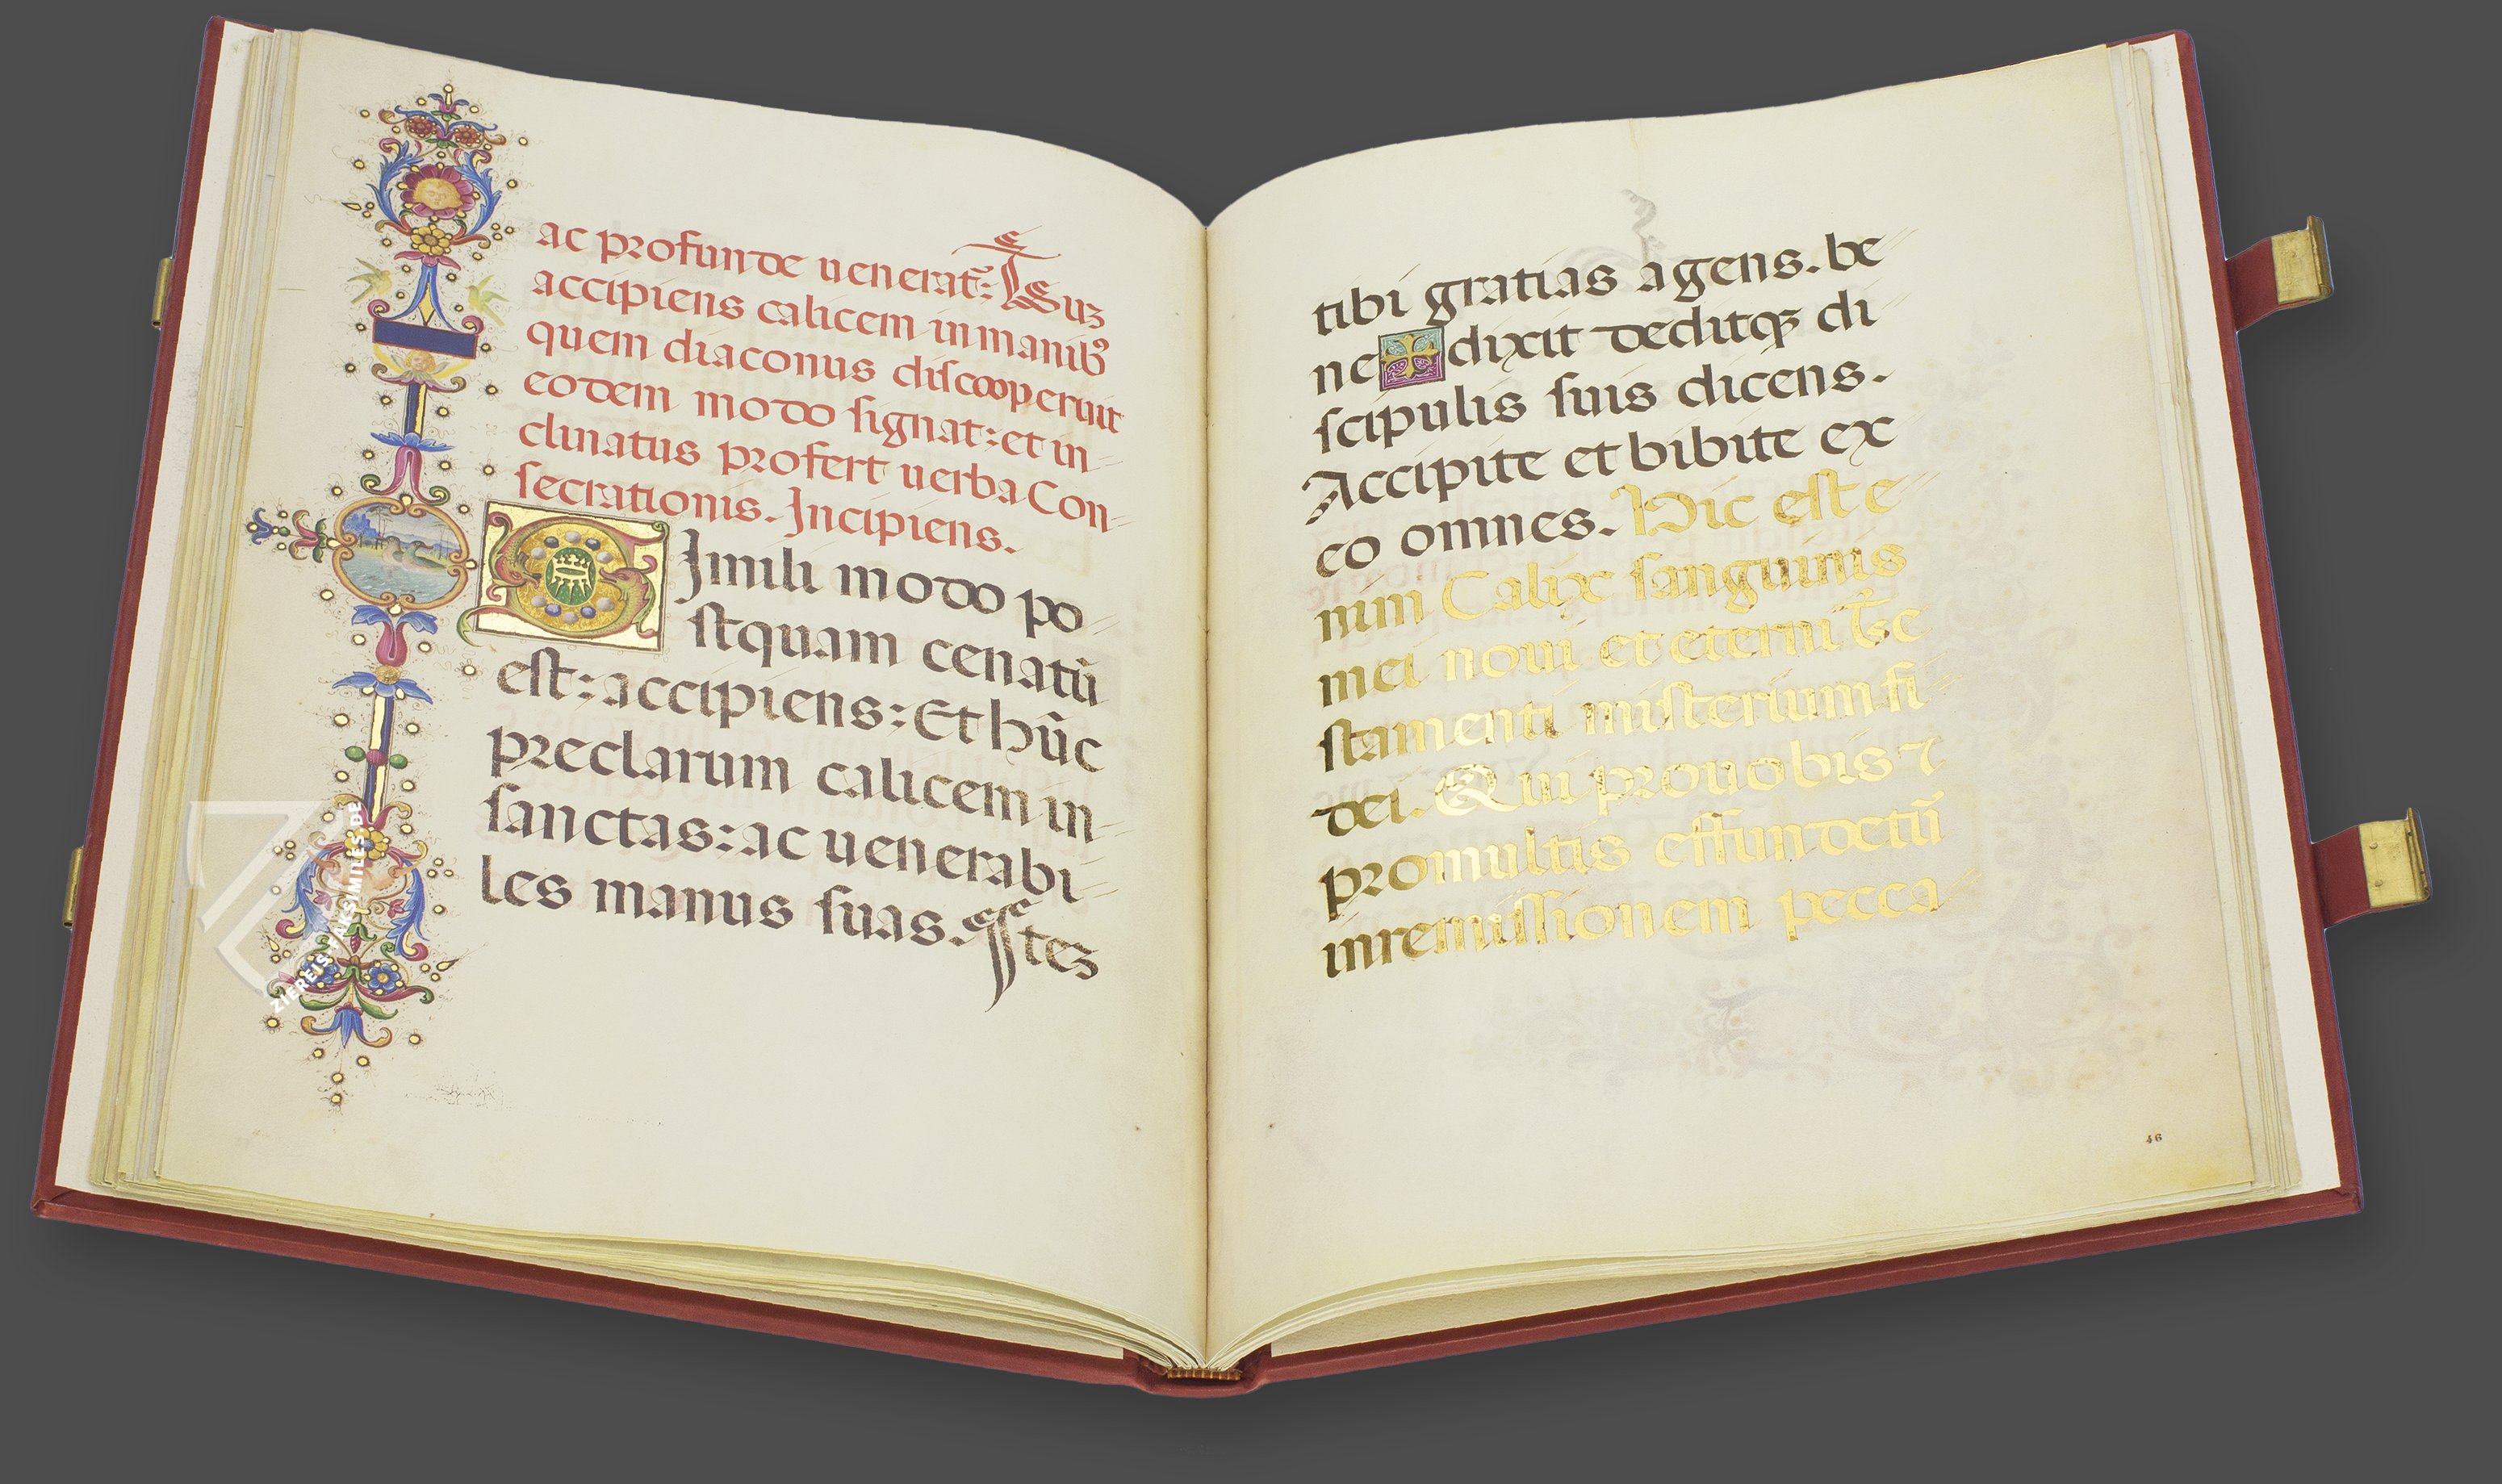 ac profunde uenerat᷑: Ĩsuꝫ
accipiens calicem in manibꝰ
quem diaconus discooperuit
eodem modo signat: et in
clinatus profert uerba Con-
secrationis. Incipiens.
SImili modo po
stquam cenatū
est: accipiens: Et hūc
preclarum calicem in
sanctas: ac uenerabi
les manus suas. Iteꝫ
tibi gratias agens. be
ne ✠ dixit deditqꝫ di
scipulis suis dicens.
Accipite et bibite ex
eo omnes. Hic est e
nim Calix sanguinis
mei noui et eterni te
stamenti misterium fi
dei. Qui pro uobis ⁊
pro multis effundetū
in remissionem pecca
46
ZIEREIS FAKSIMILES.DE